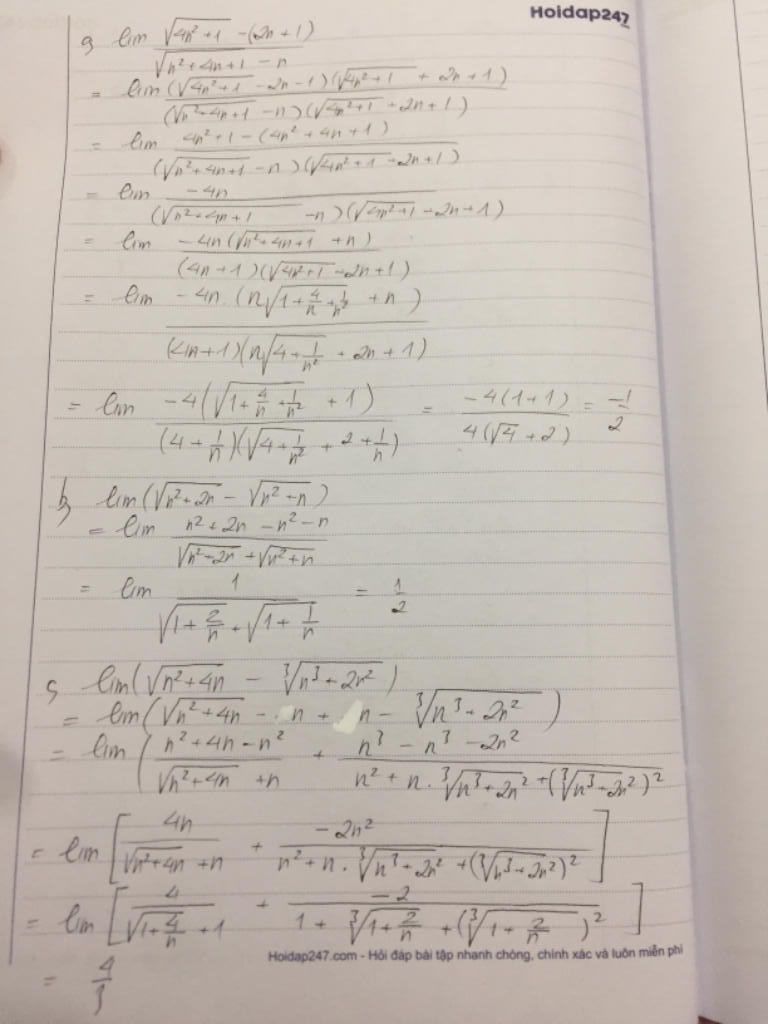 Hoidap247
a, lim (√(4n²+1) - (2n+1)) / (√(n²+4n+1) - n)
= lim ((√(4n²+1) - 2n - 1)(√(4n²+1) + 2n + 1)) / ((√(n²+4n+1) - n)(√(4n²+1) + 2n + 1))
= lim (4n²+1 - (4n²+4n+1)) / ((√(n²+4n+1) - n)(√(4n²+1) + 2n+1))
= lim (-4n) / ((√(n²+4n+1) - n)(√(4n²+1) + 2n+1))
= lim (-4n(√(n²+4n+1) + n)) / ((4n+1)(√(4n²+1) + 2n+1))
= lim (-4n.(n√(1+4/n+1/n²) + n)) / ((4n+1)(n√(4+1/n²) + 2n+1))
= lim (-4(√(1+4/n+1/n²) + 1)) / ((4+1/n)(√(4+1/n²) + 2+1/n)) = (-4(1+1)) / (4(√4+2)) = -1/2
b, lim(√(n²+2n) - √(n²+n))
= lim (n²+2n - n² - n) / (√(n²+2n) + √(n²+n))
= lim 1 / (√(1+2/n) + √(1+1/n)) = 1/2
c, lim(√(n²+4n) - ∛(n³+2n²))
= lim(√(n²+4n) - n + n - ∛(n³+2n²))
= lim((n²+4n-n²) / (√(n²+4n) + n) + (n³ - n³ - 2n²) / (n² + n.∛(n³+2n²) + (∛(n³+2n²))²)
= lim[4n / (√(n²+4n) + n) + (-2n²) / (n² + n.∛(n³+2n²) + (∛(n³+2n²))²)]
= lim[4 / (√(1+4/n) + 1) + (-2) / (1 + ∛(1+2/n) + (∛(1+2/n))²)]
= 4/3
Hoidap247.com - Hỏi đáp bài tập nhanh chóng, chính xác và luôn miễn phí